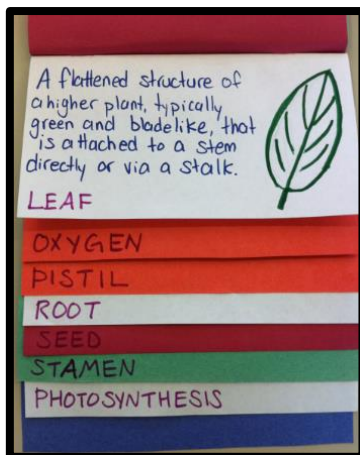 A flattened structure of
a higher plant, typically
green and bladelike, that
is attached to a stem
directly or via a stalk.
LEAF
OXYGEN
PISTIL
ROOT
SEED
STAMEN
PHOTOSYNTHESIS